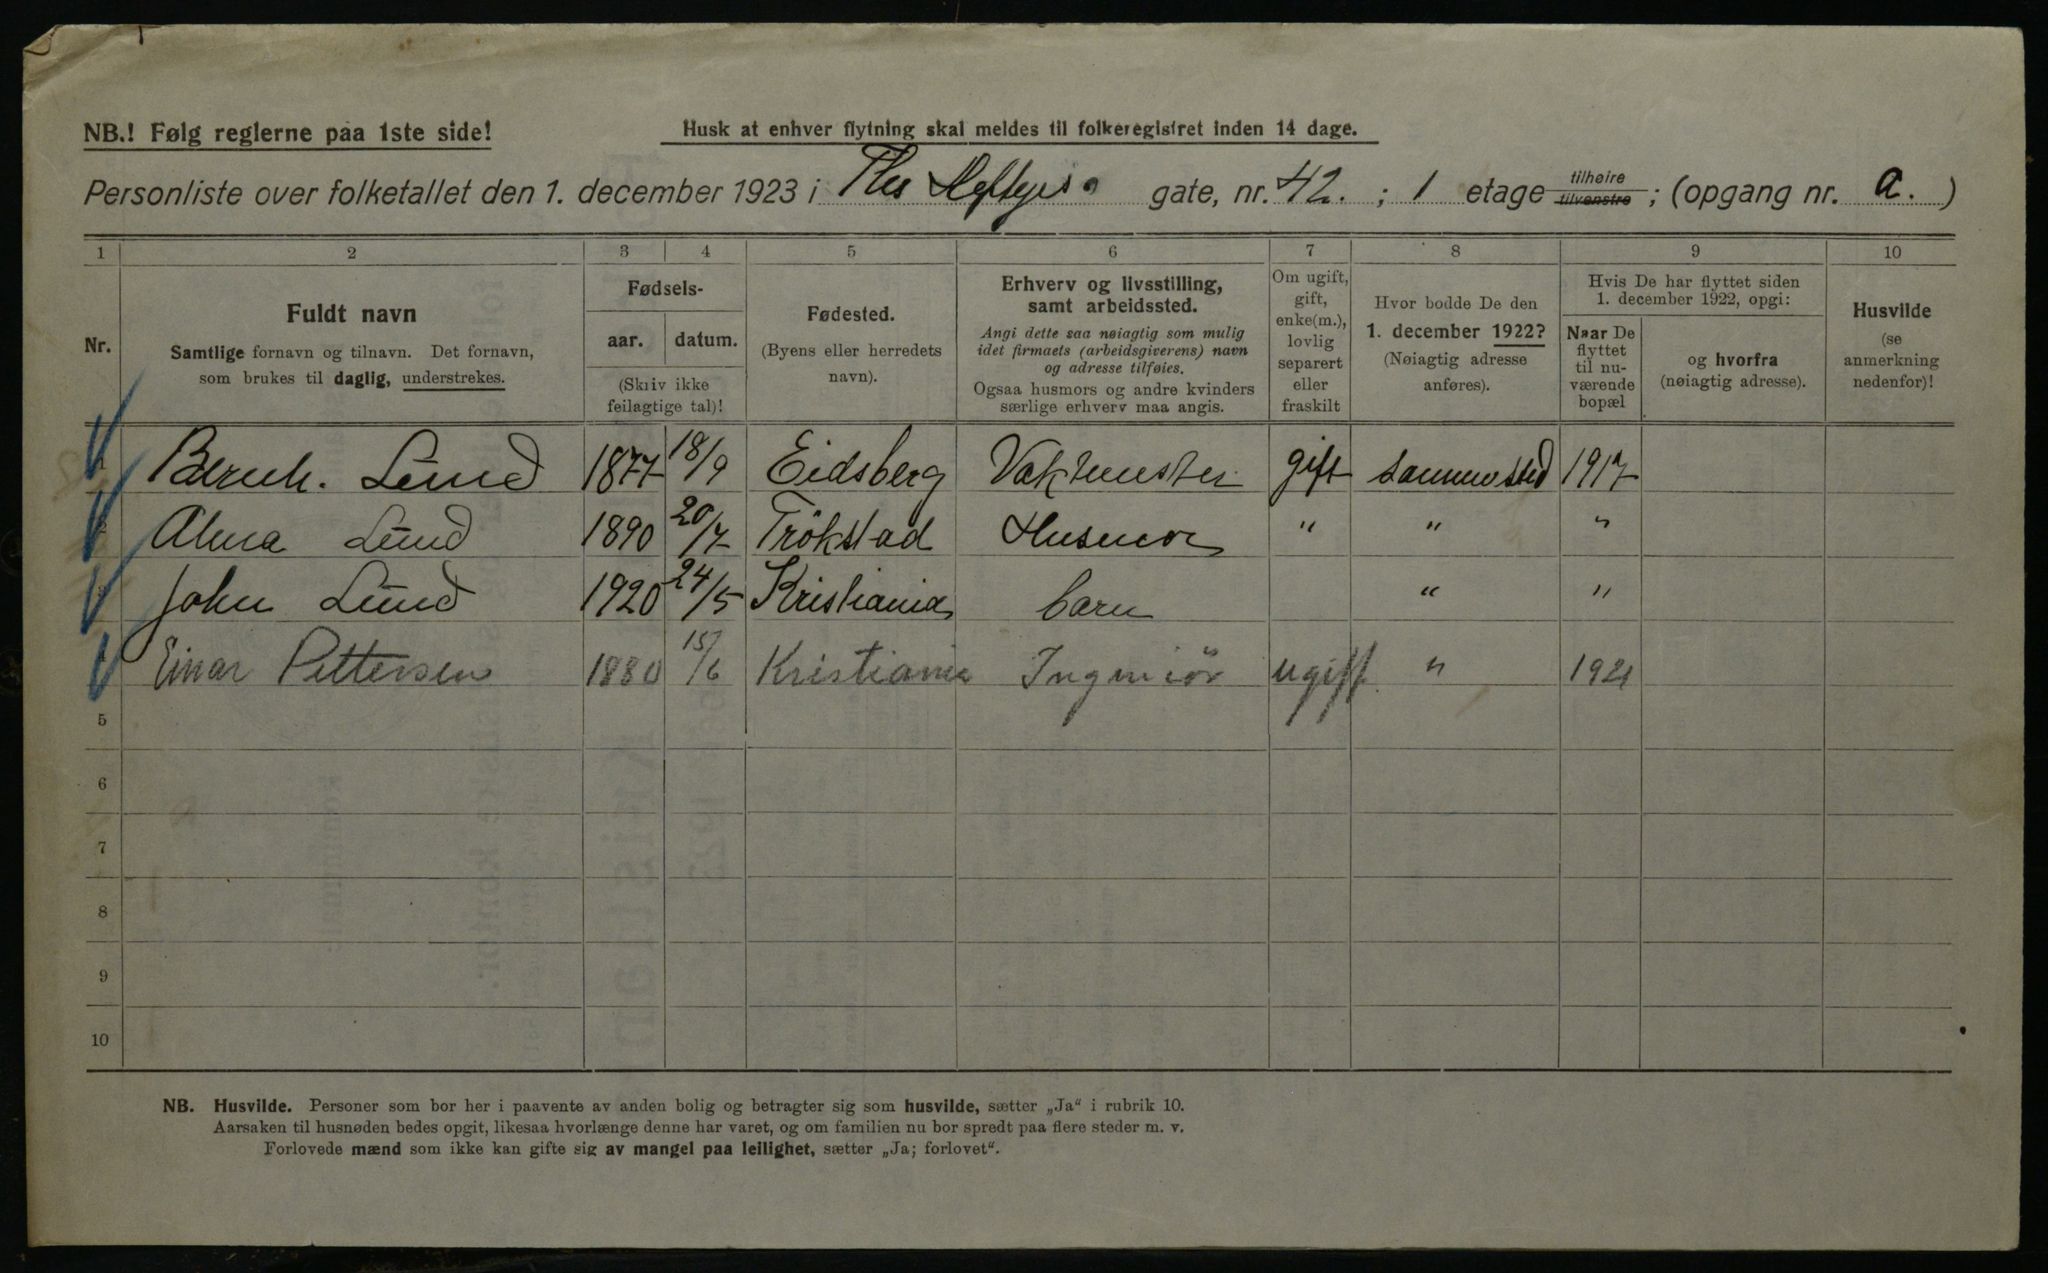 NB.! Følg reglerne paa 1ste side!
Husk at enhver flytning skal meldes til folkeregistret inden 14 dage.
Personliste over folketallet den 1. december 1923 i Ths Heftyes gate, nr. 42. ; 1 etage tilhøire tilvenstre ; (opgang nr. a. )
1 2 3 4 5 6 7 8 9 10
Nr.
Fuldt navn
Samtlige fornavn og tilnavn. Det fornavn,
som brukes til daglig, understrekes.
Fødsels-
aar. datum.
(Skriv ikke
feilagtige tal)!
Fødested.
(Byens eller herredets
navn).
Erhverv og livsstilling,
samt arbeidssted.
Angi dette saa nøiagtig som mulig
idet firmaets (arbeidsgiverens) navn
og adresse tilføies.
Ogsaa husmors og andre kvinders
særlige erhverv maa angis.
Om ugift,
gift,
enke(m.),
lovlig
separert
eller
fraskilt
Hvor bodde De den
1. december 1922?
(Nøiagtig adresse
anføres).
Hvis De har flyttet siden
1. december 1922, opgi:
Naar De
flyttet
til nu-
værende
bopæl
og hvorfra
(nøiagtig adresse).
Husvilde
(se
anmerkning
nedenfor)!
Bernh. Lund 1877 18/9 Eidsberg Vaktmester gift sammested 1917
Alma Lund 1890 20/7 Trökstad Husmor " " "
John Lund 1920 24/5 Kristiania barn " "
Einar Pettersen 1880 15/6 Kristiania Ingeniör ugift " 1921
5
6
7
8
9
10
NB. Husvilde. Personer som bor her i paavente av anden bolig og betragter sig som husvilde, sætter „Ja“ i rubrik 10.
Aarsaken til husnøden bedes opgit, likesaa hvorlænge denne har varet, og om familien nu bor spredt paa flere steder m. v.
Forlovede mænd som ikke kan gifte sig av mangel paa leilighet, sætter „Ja; forlovet“.